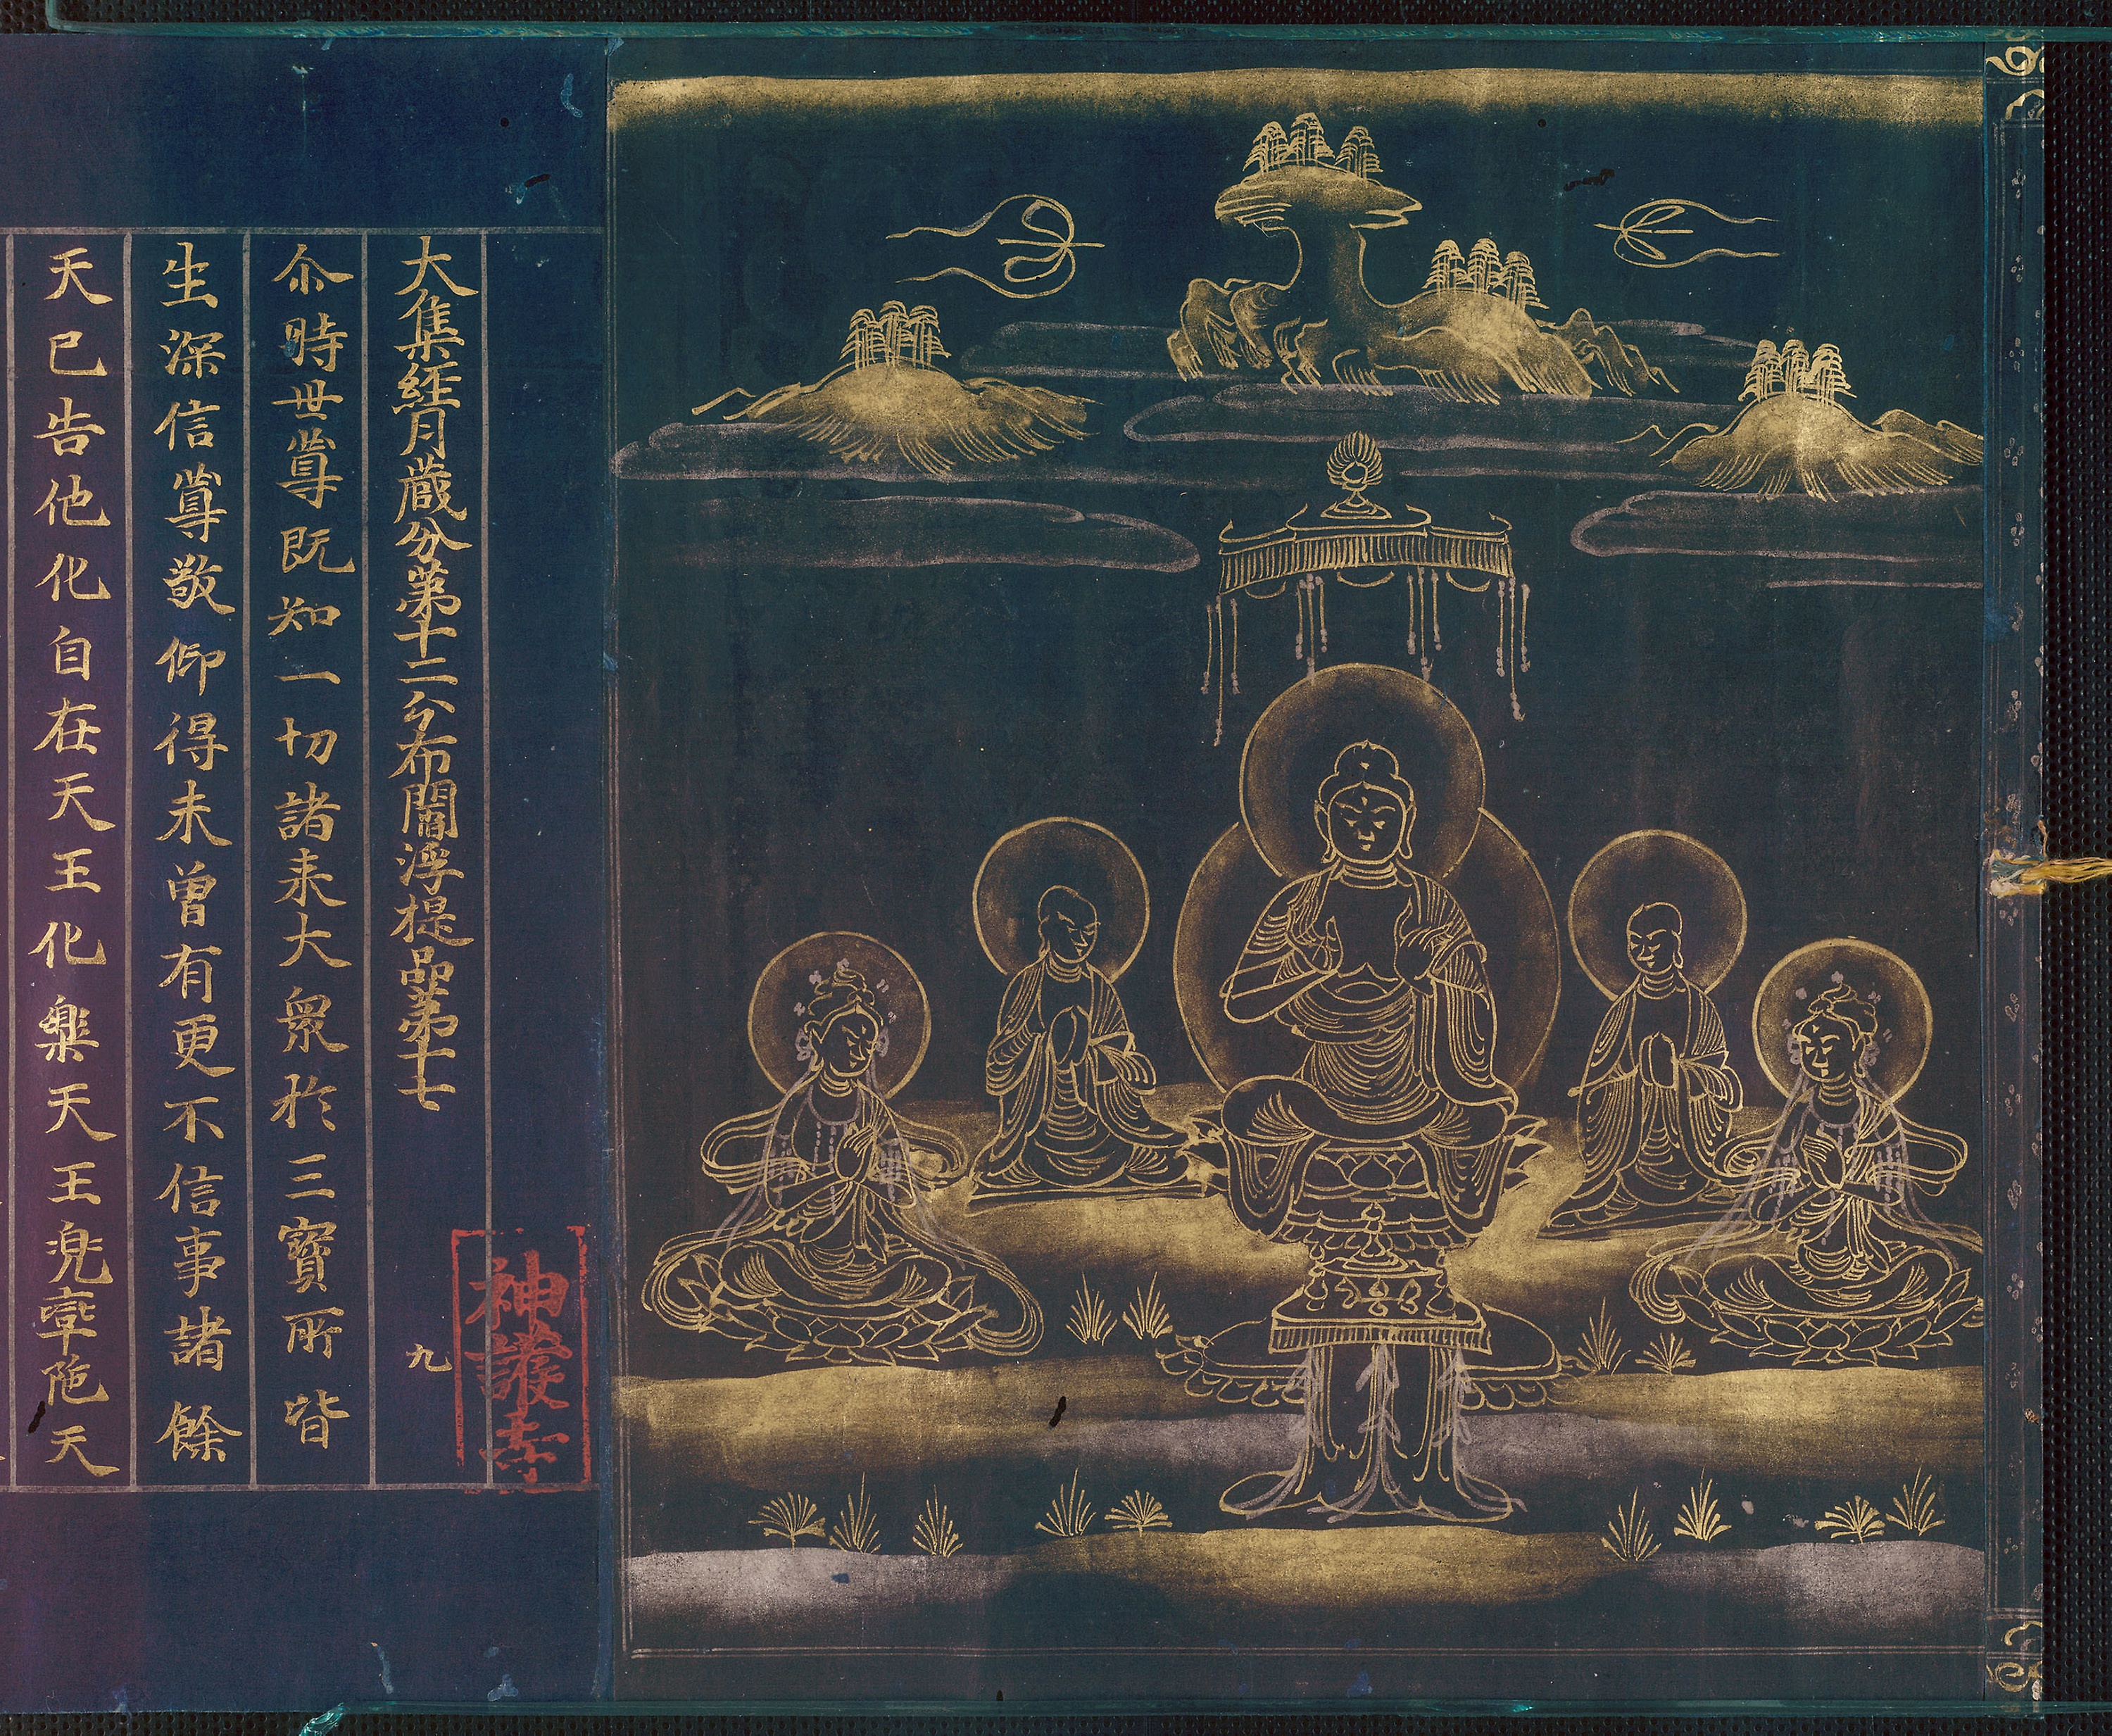 大集経月蔵分第十二分布閻浮提品第十七
九
神護寺
尒時世尊既知一切諸来大衆於三寶所皆
生深信尊敬仰得未曾有更不信事諸餘
天已告他化自在天王化樂天王兜率陁天